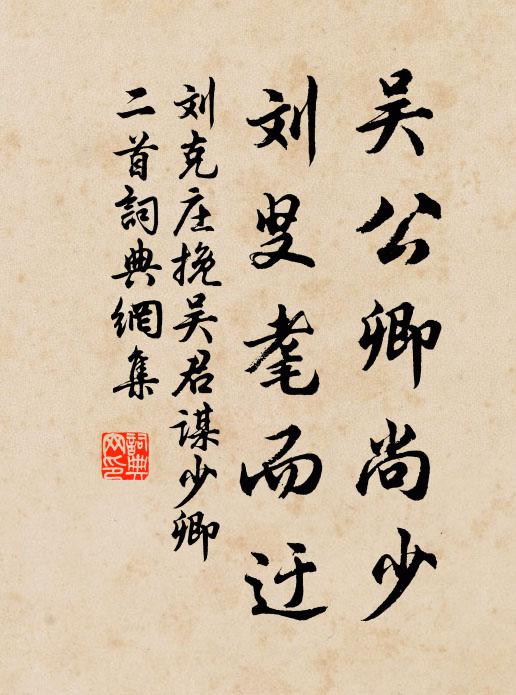 吴公卿尚少
刘叟耄而迂
刘克庄挽吴君谋少卿
二首詞典網集
詞典網印